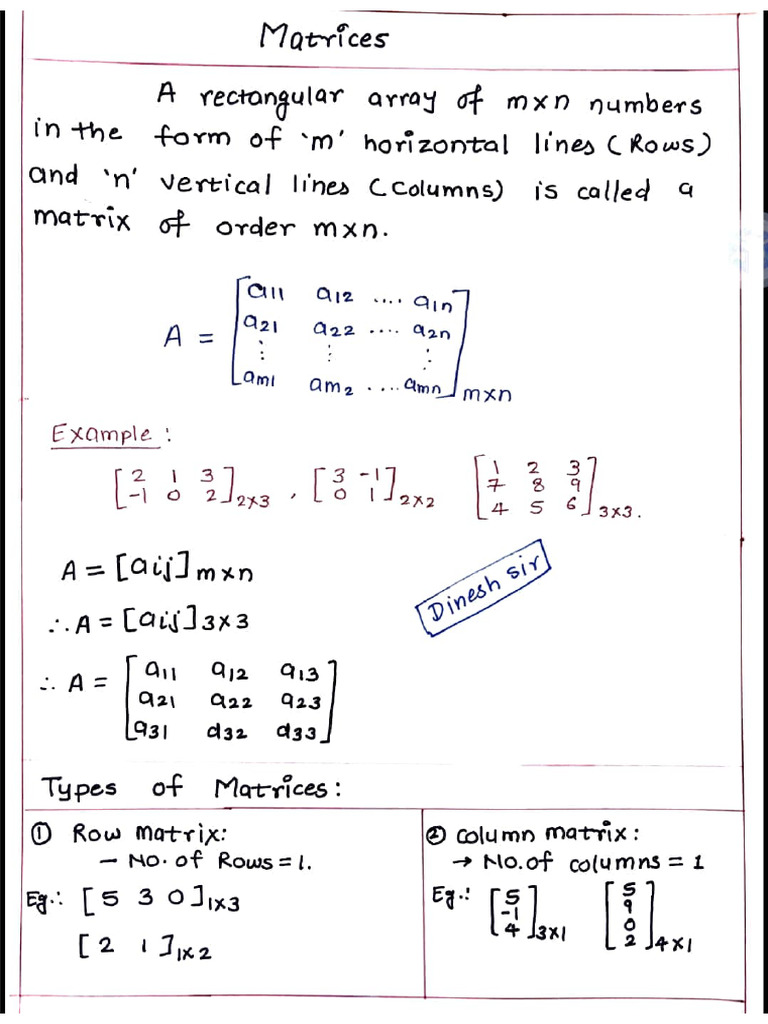 Matrices
A rectangular array of m×n numbers
in the form of 'm' horizontal lines (Rows)
and 'n' vertical lines (Columns) is called a
matrix of order m×n.
a11 a12 .... a1n
A = a21 a22 .... a2n
⋮ ⋮ ⋮
am1 am2 .... amn m×n
Example :
[2 1 3
-1 0 2]2×3 , [3 -1
0 1]2×2 [1 2 3
7 8 9
4 5 6]3×3.
A = [aij]m×n
Dinesh sir
∴ A = [aij]3×3
∴ A = [a11 a12 a13
a21 a22 a23
a31 d32 d33]
Types of Matrices:
① Row matrix:
– No. of Rows = 1.
Eg.: [5 3 0]1×3
[2 1]1×2
② column matrix:
→ No. of columns = 1
Eg.: [5
-1
4]3×1 [5
9
0
2]4×1